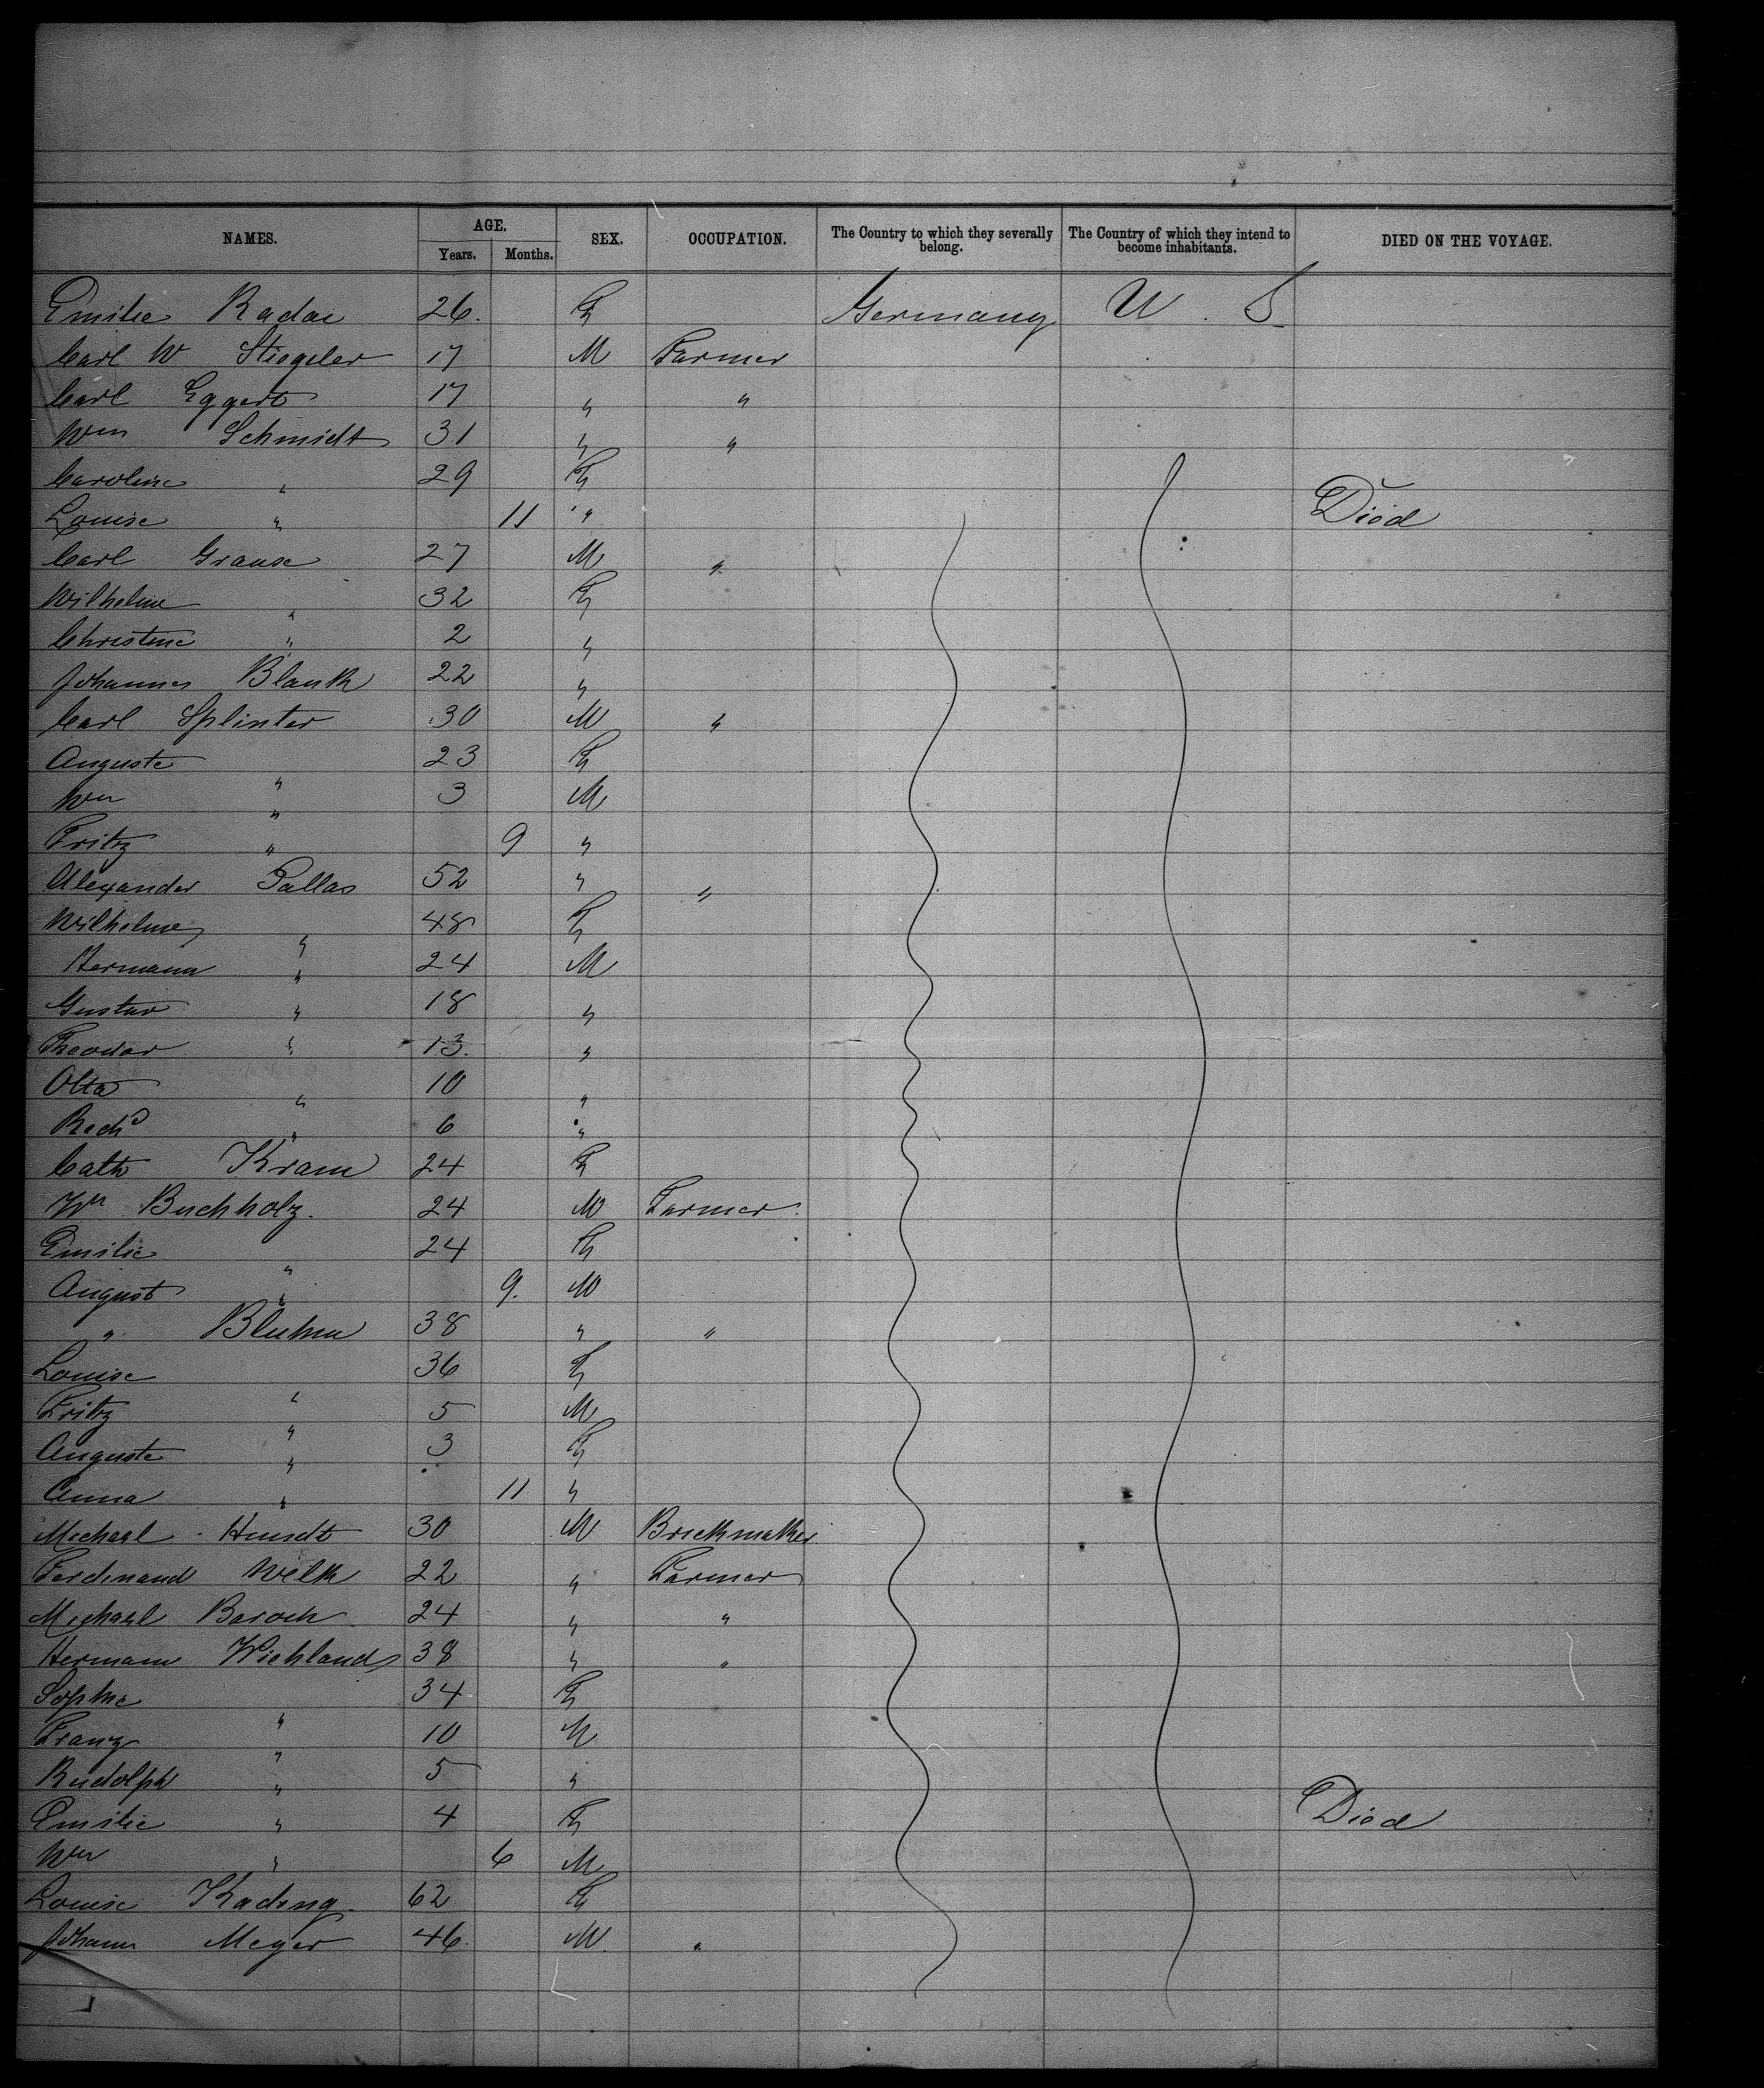 NAMES. AGE. SEX. OCCUPATION. The Country to which they severally belong. The Country of which they intend to become inhabitants. DIED ON THE VOYAGE.
Years. Months.
Emilie Radai 26. F Germany U. S.
Carl W Stiegeler 17 M Farmer
Carl Eggert 17 " "
Wm Schmidt 31 " "
Caroline " 29 F
Louise " 11 " Died
Carl Grause 27 M "
Wilhelmine " 32 F
Christine " 2 "
Johannes Blank 22 "
Carl Splinter 30 M "
Auguste " 23 F
Wm " 3 M
Fritz " 9 "
Alexander Pallas 52 " "
Wilhelmine " 48 F
Hermann " 24 M
Gustav " 18 "
Theodor " 13. "
Otto " 10 "
Rich'd " 6 "
Cath Kram 24 F
Wm Buchholz. 24 M Farmer.
Emilie " 24 F
August " 9. M
" Bluhm 38 " "
Louise " 36 F
Fritz " 5 M
Auguste " 3 F
Anna " 11 "
Michael 30 M Brickmaker
Ferdinand Wilk 22 " Farmer
Michael Baroch 24 " "
Hermann Wiehland 38 " "
Sophie " 34 F
Franz " 10 M
Rudolph " 5 "
Emilie " 4 F Died
Wm " 6 M
Louise Kading. 62 F
Johann Meyer 46. M. "